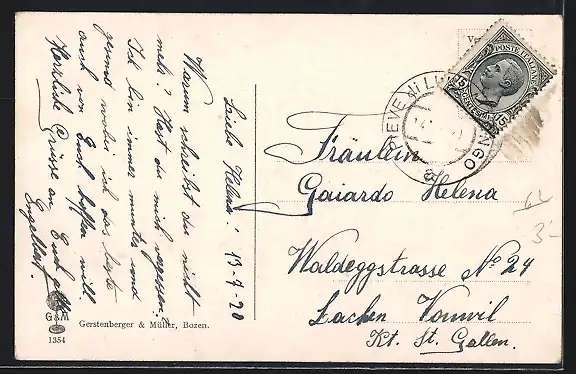 Liebe Helena! 13-7-20
Warum schreibst du nicht
mehr? Hast du mich vergessen?
Ich bin immer munter und
gesund wobei ich das beste
auch von Euch hoffen will.
Herzliche Grüsse an Euch alle
Engelbert.
G&M
1354
Gerstenberger & Müller, Bozen.
POSTE ITALIANE
15
15
PIEVE DI LI NGO
Fräulein
Gaiardo Helena
Waldeggstrasse No 24
Lachen Vonwil
Kt. St. Gallen.
3-